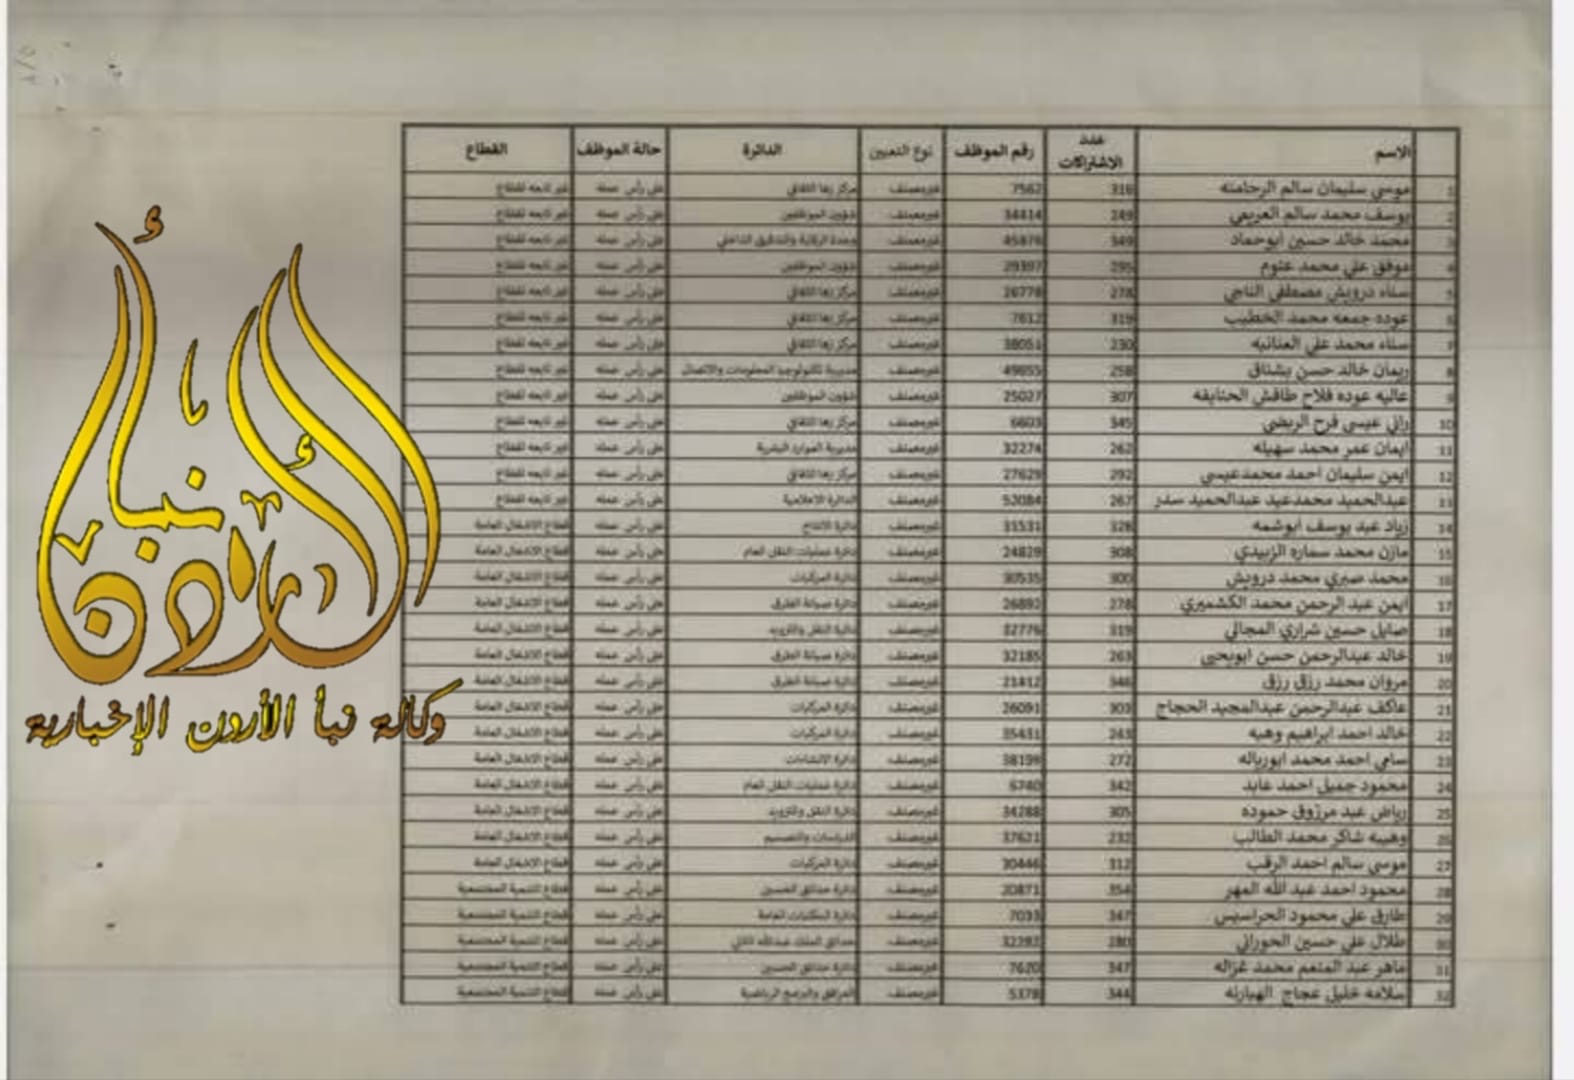 الاسم عدد الاشتراكات رقم الموظف نوع التعيين الدائرة حالة الموظف القطاع
1 موسى سليمان سالم الرحامنه 316 7562 غيرمصنف مركز زها الثقافي على رأس عمله غير تابعه لقطاع
2 يوسف محمد سالم 249 34414 غيرمصنف شؤون الموظفين على رأس عمله غير تابعه لقطاع
3 محمد خالد حسين ابوحماد 349 غيرمصنف وحدة الرقابة والتدقيق الداخلي على رأس عمله غير تابعه لقطاع
4 موفق علي محمد عتوم 295 29397 غيرمصنف شؤون الموظفين على رأس عمله غير تابعه لقطاع
5 سناء درويش مصطفى الناجي 278 26778 غيرمصنف مركز زها الثقافي على رأس عمله غير تابعه لقطاع
6 عوده جمعه محمد الخطيب 319 7612 غيرمصنف مركز زها الثقافي على رأس عمله غير تابعه لقطاع
7 سناء محمد علي 230 38051 غيرمصنف مركز زها الثقافي على رأس عمله غير تابعه لقطاع
8 ريمان خالد حسن بشناق 258 غيرمصنف مديرية تكنولوجيا المعلومات والاتصال على رأس عمله غير تابعه لقطاع
9 عاليه عوده فلاح طافش 307 25027 غيرمصنف شؤون الموظفين على رأس عمله غير تابعه لقطاع
10 راني عيسى فرح الربضي 345 6603 غيرمصنف مركز زها الثقافي على رأس عمله غير تابعه لقطاع
11 ايمان عمر محمد سهيله 262 32274 غيرمصنف مديرية الموارد البشرية على رأس عمله غير تابعه لقطاع
12 ايمن سليمان احمد محمدعيسى 292 27629 غيرمصنف مركز زها الثقافي على رأس عمله غير تابعه لقطاع
13 عبدالحميد محمدعيد عبدالحميد سدر 267 52084 غيرمصنف الدائرة الاعلامية على رأس عمله غير تابعه لقطاع
14 زياد عيد يوسف ابوشمه 328 31531 غيرمصنف دائرة الانتاج على رأس عمله قطاع الاشغال العامة
15 مازن محمد سماره الزبيدي 308 24829 غيرمصنف دائرة عمليات النقل العام على رأس عمله قطاع الاشغال العامة
16 محمد صبري محمد درويش 300 30535 غيرمصنف دائرة المركبات على رأس عمله قطاع الاشغال العامة
17 ايمن عبد الرحمن محمد الكشميري 278 26892 غيرمصنف دائرة صيانة الطرق على رأس عمله قطاع الاشغال العامة
18 صايل حسين شراري المجالي 319 32776 غيرمصنف دائرة النقل والتزويد على رأس عمله قطاع الاشغال العامة
19 خالد عبدالرحمن حسن ابويحيى 263 32185 غيرمصنف دائرة صيانة الطرق على رأس عمله قطاع الاشغال العامة
20 مروان محمد رزق رزق 346 21412 غيرمصنف دائرة صيانة الطرق على رأس عمله قطاع الاشغال العامة
21 عاكف عبدالرحمن عبدالمجيد الحجاج 303 26091 غيرمصنف دائرة المركبات على رأس عمله قطاع الاشغال العامة
22 خالد احمد ابراهيم وهبه 243 35431 غيرمصنف دائرة المركبات على رأس عمله قطاع الاشغال العامة
23 سامي احمد محمد ابورياله 272 38199 غيرمصنف دائرة الانشاءات على رأس عمله قطاع الاشغال العامة
24 محمود جميل احمد عابد 342 6740 غيرمصنف دائرة عمليات النقل العام على رأس عمله قطاع الاشغال العامة
25 رياض عبد مرزوق حموده 305 34288 غيرمصنف دائرة النقل والتزويد على رأس عمله قطاع الاشغال العامة
26 وهيبه شاكر محمد الطالب 232 37621 غيرمصنف الدراسات والتصميم على رأس عمله قطاع الاشغال العامة
27 موسى سالم احمد الرقب 312 30446 غيرمصنف دائرة المركبات على رأس عمله قطاع الاشغال العامة
28 محمود احمد عبد الله المهر 354 20871 غيرمصنف دائرة حدائق الحسين على رأس عمله قطاع التنمية المجتمعية
29 طارق علي محمود الحراسيس 347 7033 غيرمصنف دائرة المكتبات العامة على رأس عمله قطاع التنمية المجتمعية
30 طلال علي حسين الحوراني 280 32292 غيرمصنف حدائق الملك عبدالله الثاني على رأس عمله قطاع التنمية المجتمعية
31 ماهر عبد المنعم محمد غزاله 347 7620 غيرمصنف دائرة حدائق الحسين على رأس عمله قطاع التنمية المجتمعية
32 سلامه خليل عجاج الهبارنه 344 5378 غيرمصنف المرافق والبرامج الرياضية على رأس عمله قطاع التنمية المجتمعية
نبأ الأردن
وكالة نبأ الأردن الإخبارية